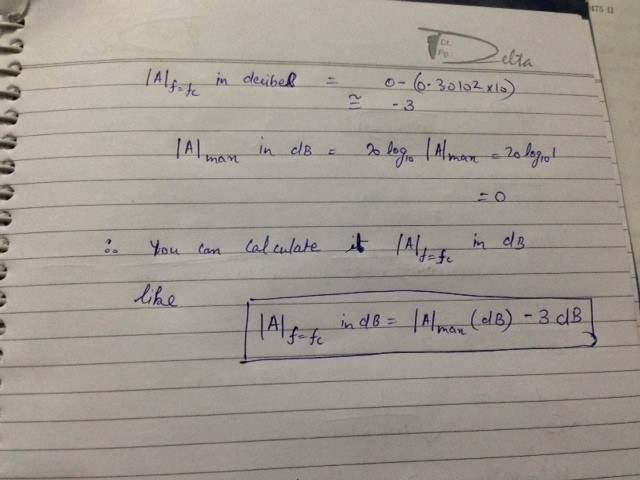 475 Ω
Delta
Dt.
Pg.
|A|f=fc in decibel = 0-(0.30102×10)
≅ -3
|A|max in dB = 20 log10 |A|max = 20 log10 1
= 0
∴ You can calculate it |A|f=fc in dB
like
|A|f=fc in dB = |A|max (dB) - 3 dB